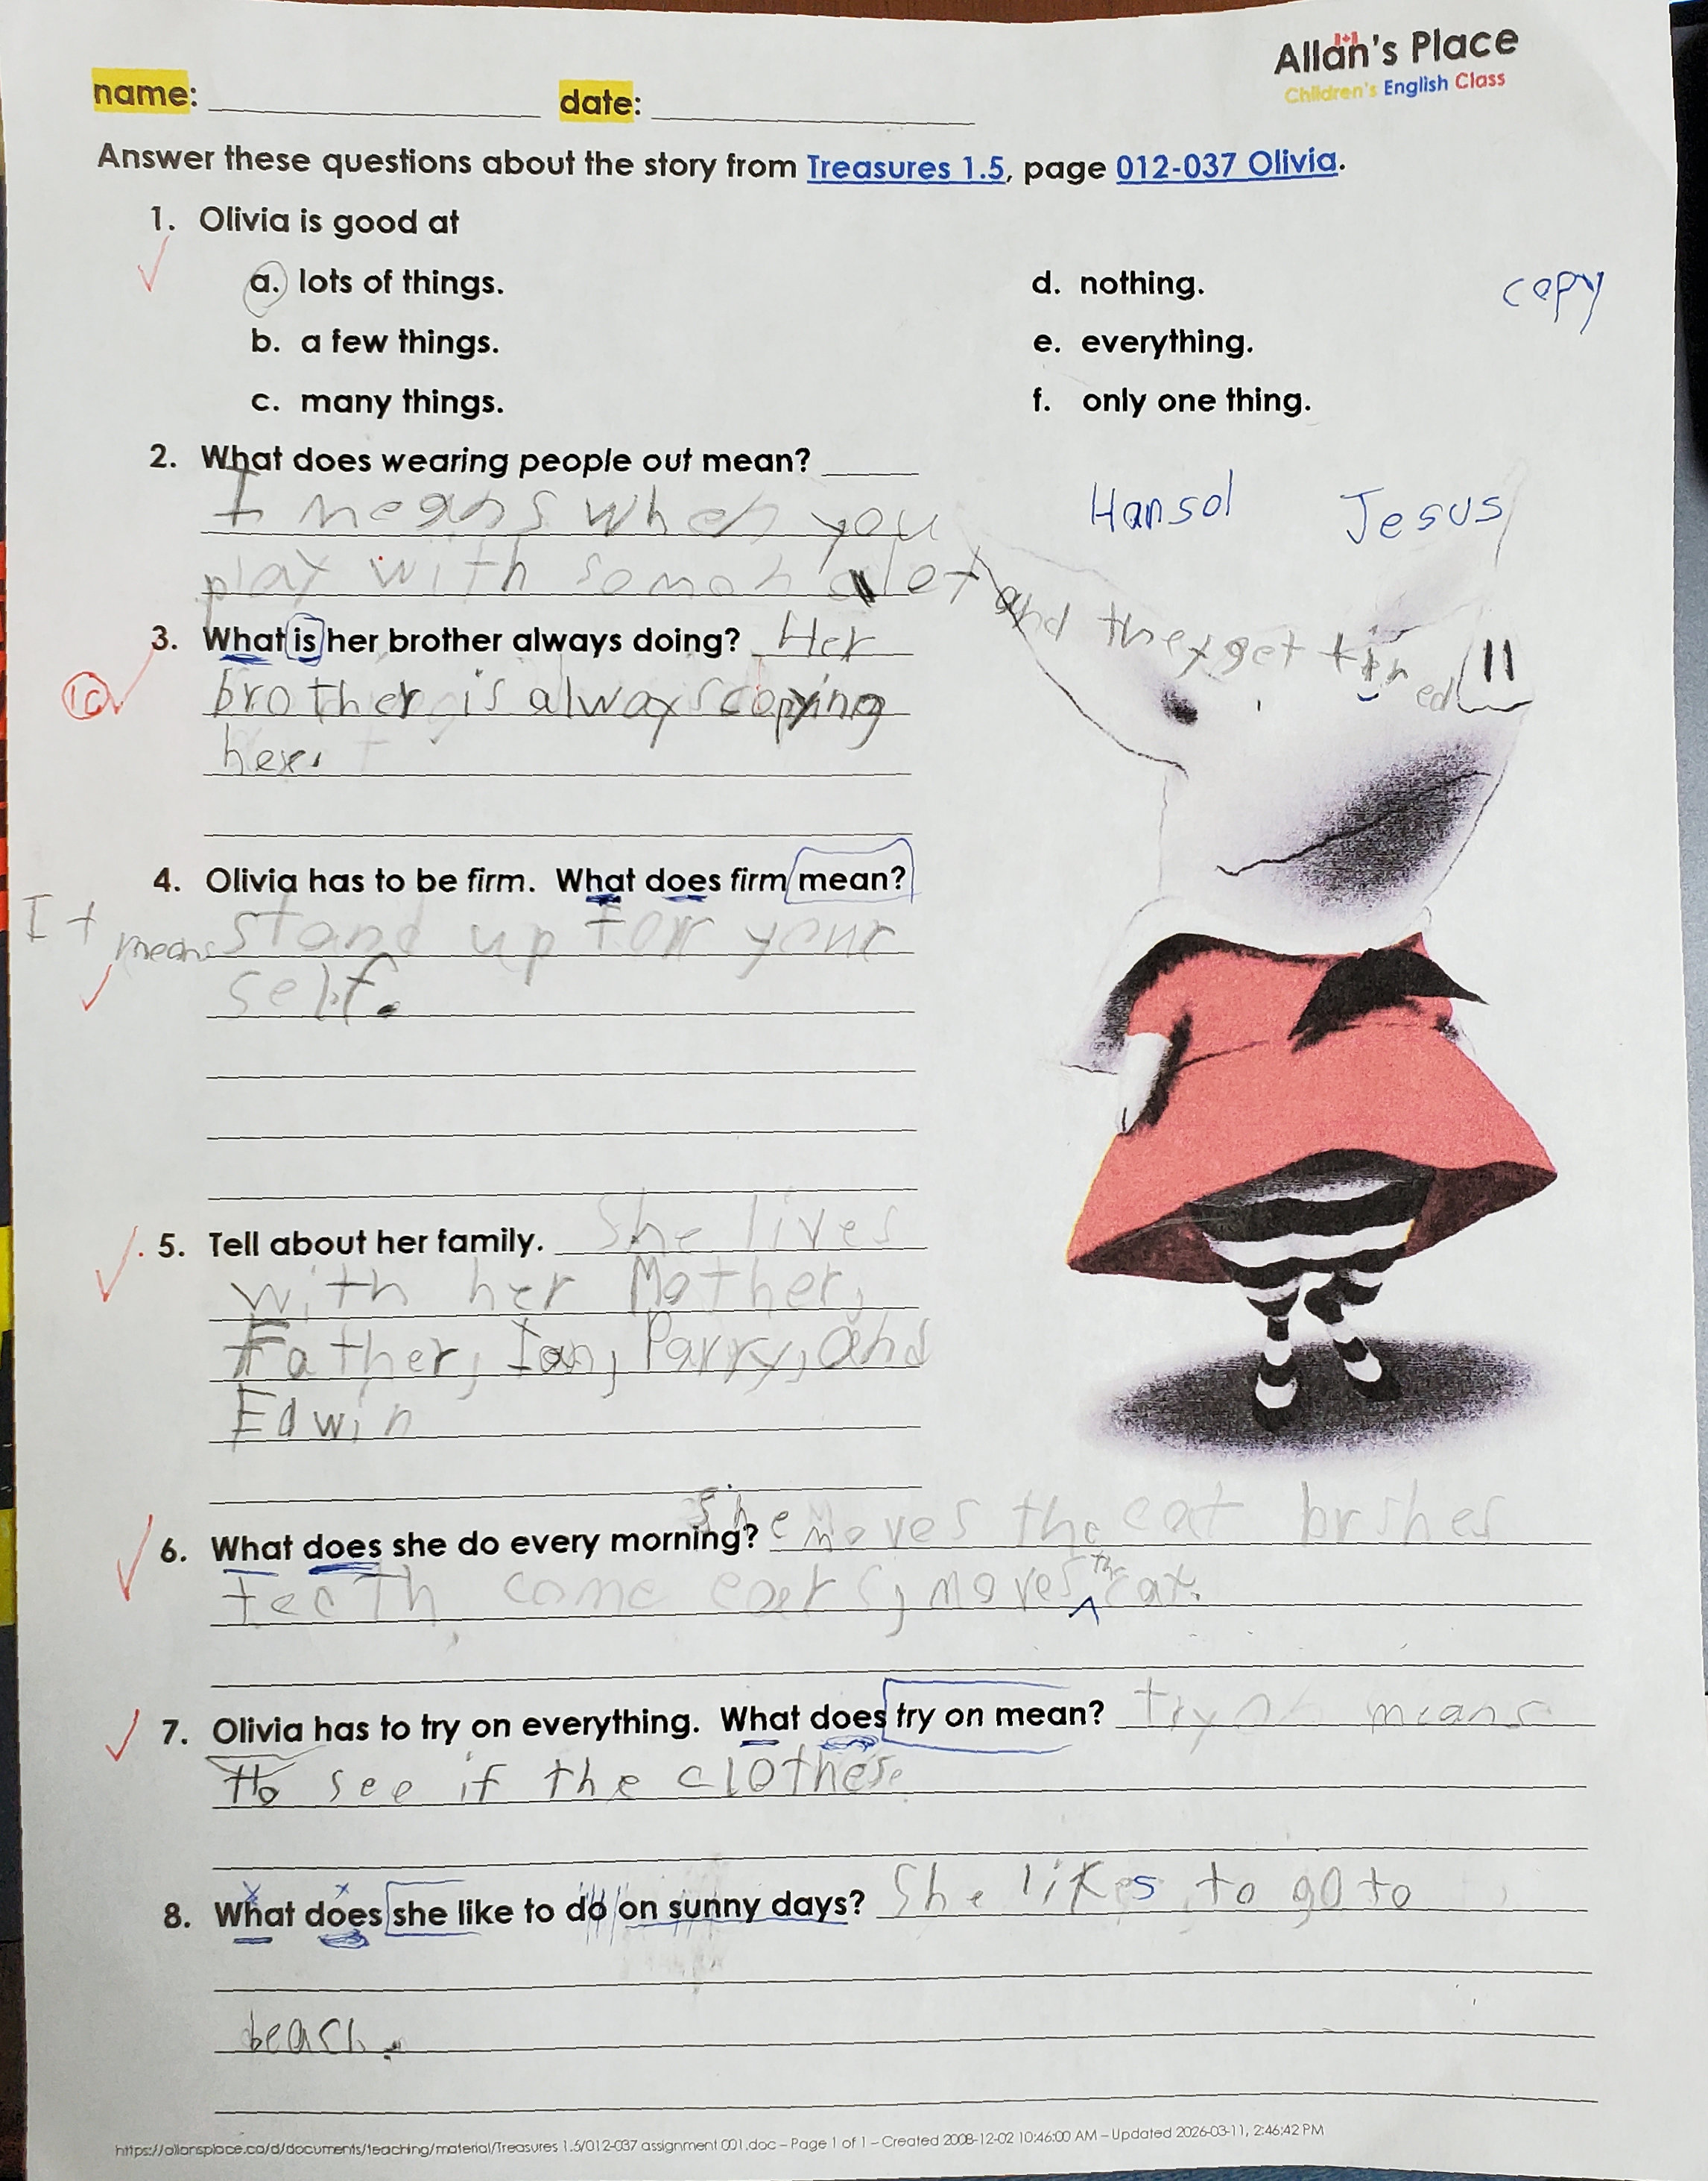 Allan's Place
Children's English Class
name: ____________ date: ____________
Answer these questions about the story from Treasures 1.5, page 012-037 Olivia.
1. Olivia is good at
a. lots of things.
b. a few things.
c. many things.
d. nothing.
e. everything.
f. only one thing.
copy
2. What does wearing people out mean?
I means when you
play with somon a lot and they get tired
Hansol Jesus
3. What is her brother always doing? Her
brother is always copying
her.
1c
4. Olivia has to be firm. What does firm mean?
It means stand up for your
self.
5. Tell about her family. She lives
with her Mother,
Father, Ian, Parry, and
Edwin
6. What does she do every morning? She moves the cat brshes
teeth, come ears, moves the cat.
7. Olivia has to try on everything. What does try on mean? try on means
to see if the clothes
8. What does she like to do on sunny days? She likes to go to
beach.
https://allansplace.ca/d/documents/teaching/material/Treasures 1.5/012-037 assignment 001.doc – Page 1 of 1 – Created 2008-12-02 10:46:00 AM – Updated 2026-03-11, 2:46:42 PM